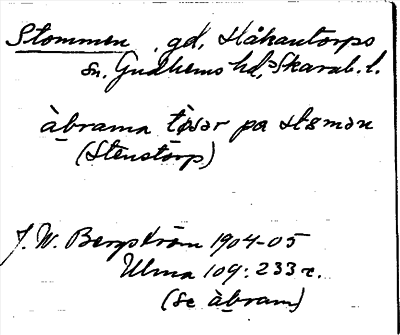 Stommen, gd, Håkantorps
sn. Gudhems hd, Skarab. l.
àbrama tøsər pa stəmən
(Stenstorp)
J. W. Bergström 1904-05
Ulma 109: 233 r.
(se àbram)